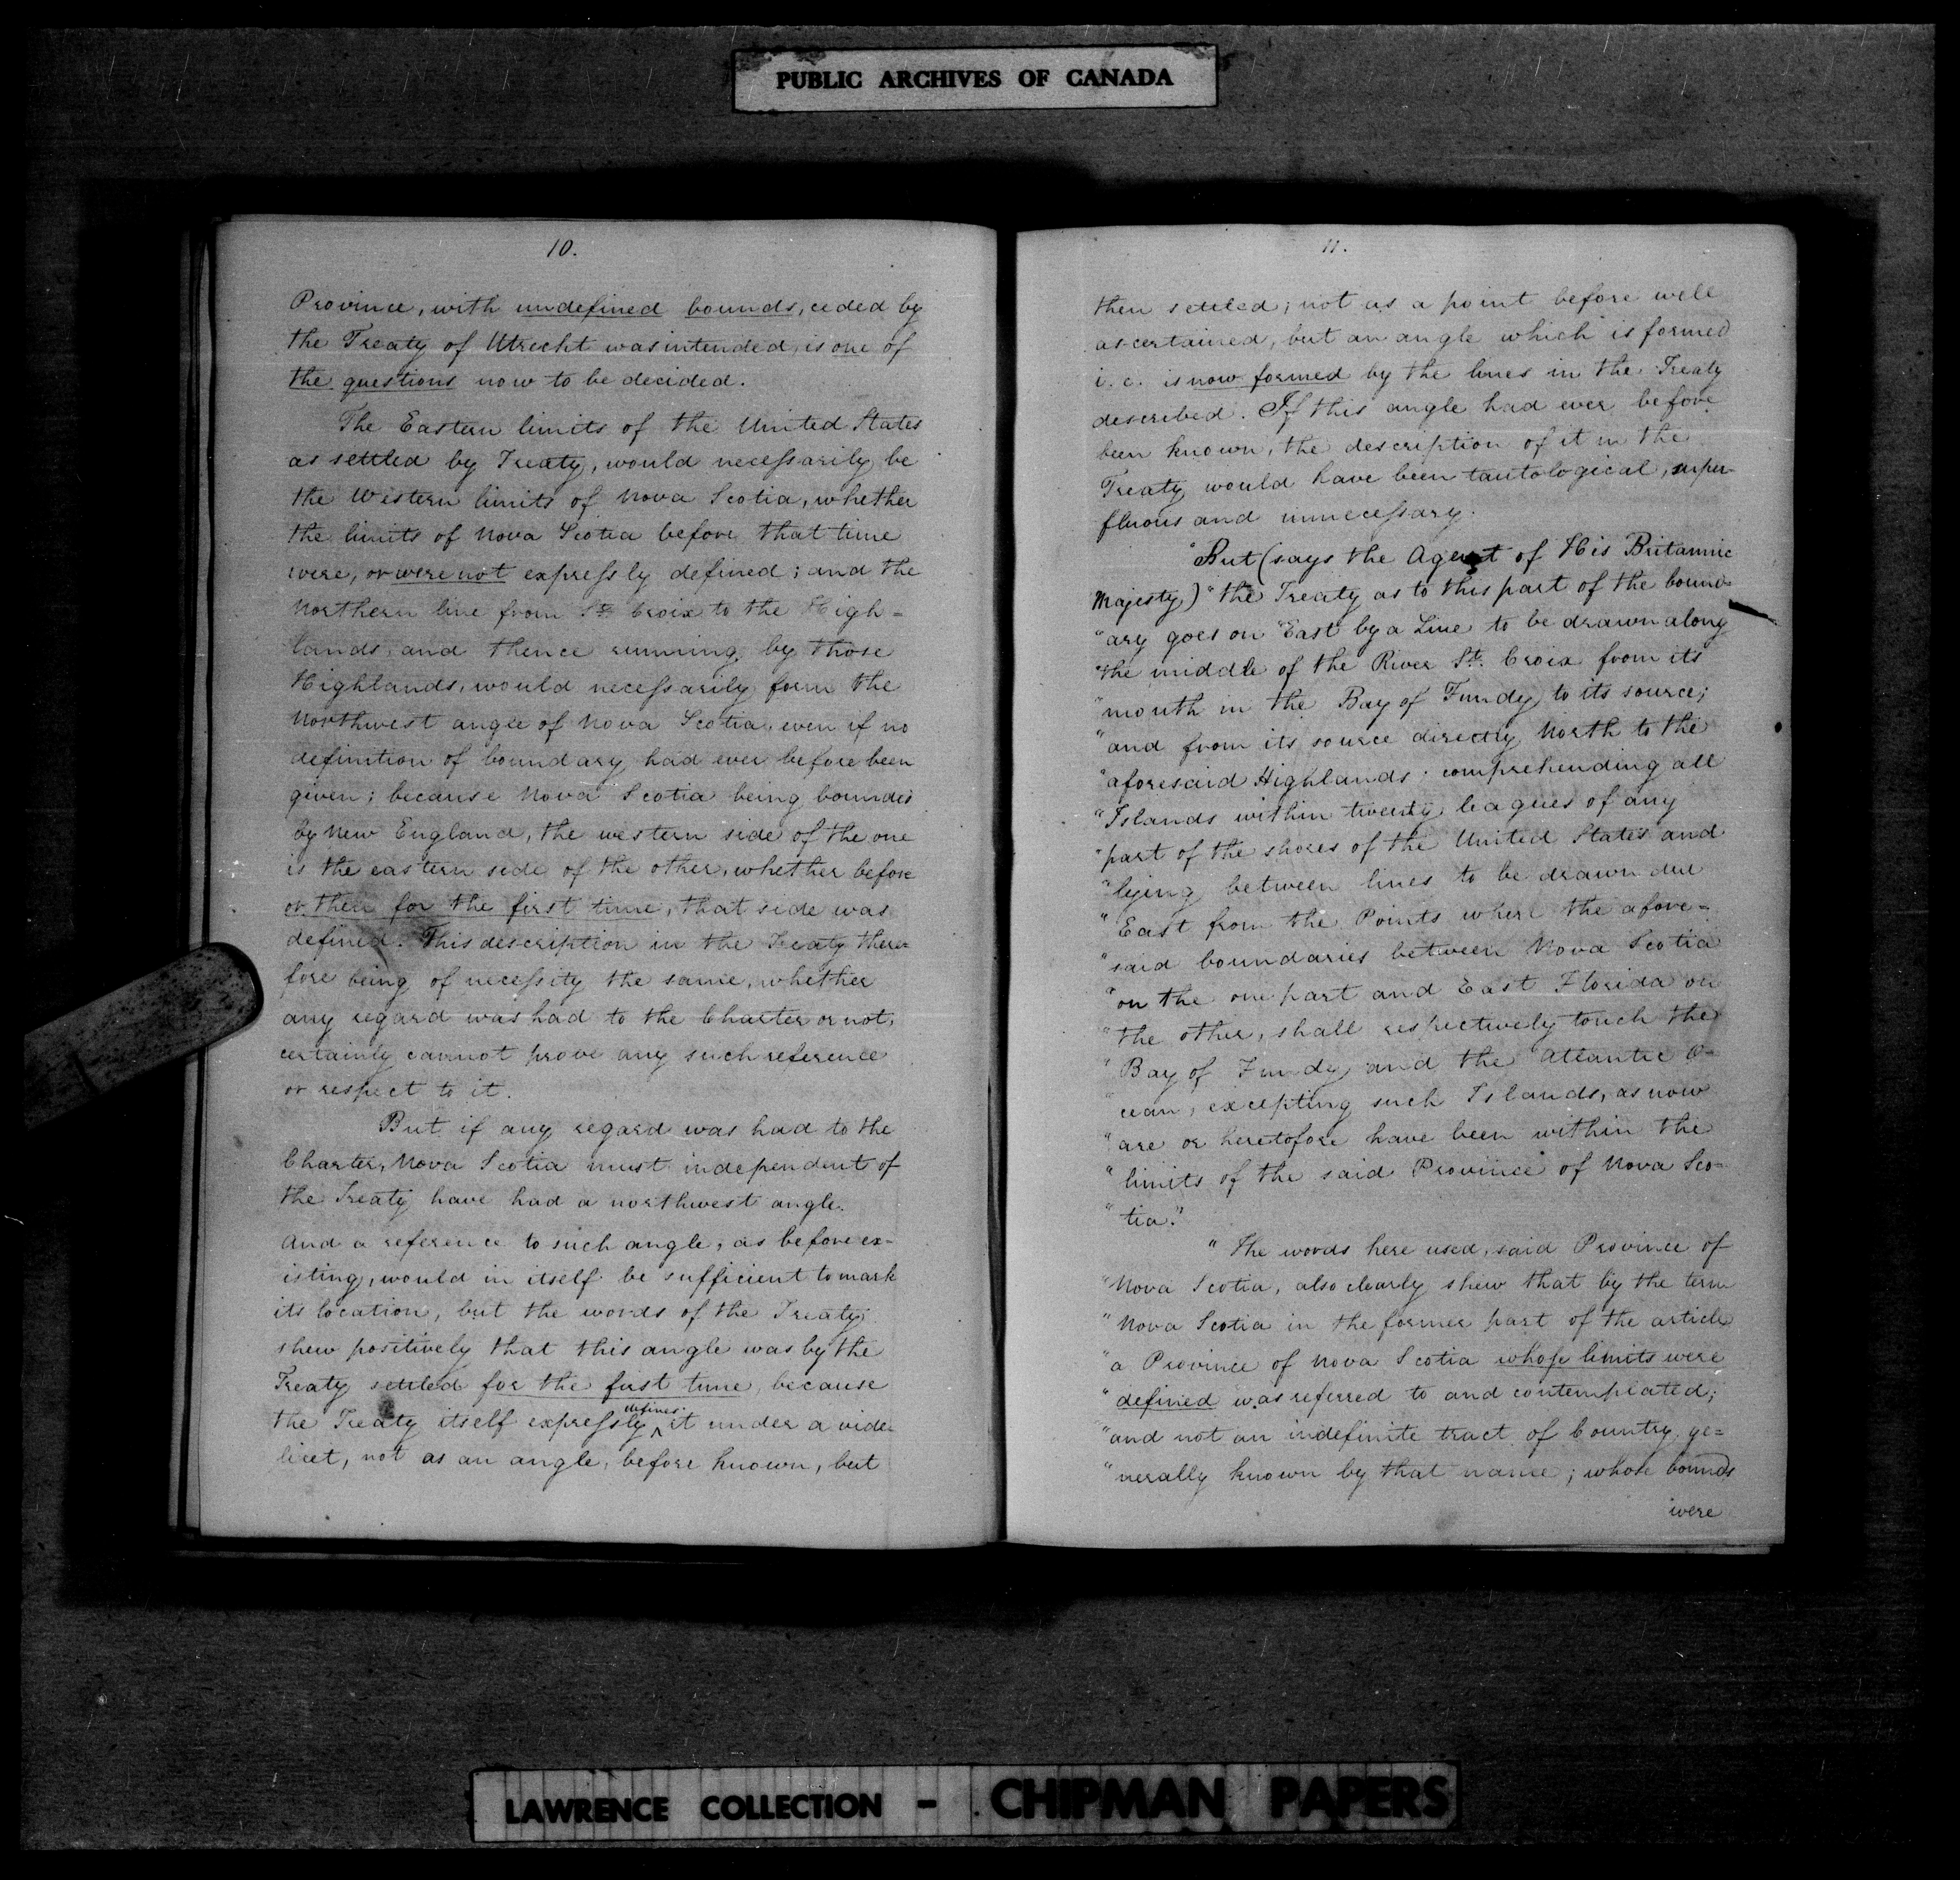 PUBLIC ARCHIVES OF CANADA
10.
Province, with undefined bounds, ceded by
the Treaty of Utrecht was intended, is one of
the questions now to be decided.
The Eastern limits of the United States
as settled by Treaty, would necessarily be
the Western limits of Nova Scotia, whether
the limits of Nova Scotia before that time
were, or were not expressly defined; and the
Northern line from St. Croix to the High-
lands, and thence running by those
Highlands, would necessarily form the
Northwest angle of Nova Scotia, even if no
definition of boundary had ever before been
given; because Nova Scotia being bounded
by New England, the western side of the one
is the eastern side of the other, whether before
or then for the first time, that side was
defined. This description in the Treaty there-
fore being of necessity the same, whether
any regard was had to the Charter or not,
certainly cannot prove any such reference
or respect to it.
But if any regard was had to the
Charter, Nova Scotia must independent of
the Treaty have had a northwest angle.
And a reference to such angle, as before ex-
isting, would in itself be sufficient to mark
its location, but the words of the Treaty
shew positively that this angle was by the
Treaty settled for the first time, because
the Treaty itself expressly defines it under a vide-
licet, not as an angle, before known, but
11.
then settled; not as a point before well
ascertained, but an angle which is formed
i.e. is now formed by the lines in the Treaty
described. If this angle had ever before
been known, the description of it in the
Treaty would have been tautological, super-
fluous and unnecessary.
"But (says the Agent of His Britannic
Majesty) "the Treaty as to this part of the bound-
"ary goes on "East by a Line to be drawn along
"the middle of the River St. Croix from its
"mouth in the Bay of Fundy to its source;
"and from its source directly North to the
"aforesaid Highlands: comprehending all
"Islands within twenty leagues of any
"part of the shores of the United States and
"lying between lines to be drawn due
"East from the Points where the afore-
"said boundaries between Nova Scotia
"on the one part and East Florida on
"the other, shall respectively touch the
"Bay of Fundy and the Atlantic O-
"cean, excepting such Islands, as now
"are or heretofore have been within the
"limits of the said Province of Nova Sco-
"tia."
"The words here used, said Province of
"Nova Scotia, also clearly shew that by the term
"Nova Scotia in the former part of the article
"a Province of Nova Scotia whose limits were
"defined was referred to and contemplated;
"and not an indefinite tract of Country ge-
"nerally known by that name; whose bounds
were
LAWRENCE COLLECTION - CHIPMAN PAPERS